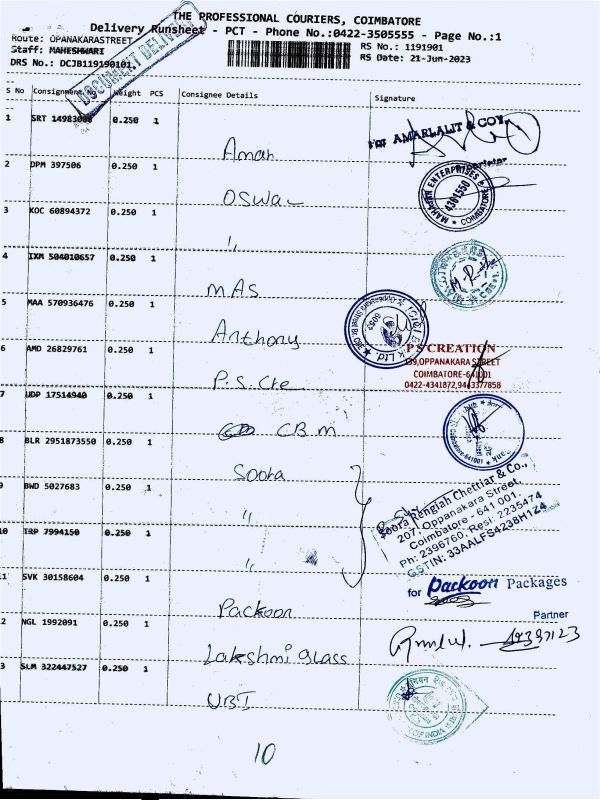 THE PROFESSIONAL COURIERS, COIMBATORE
Delivery Runsheet - PCT - Phone No.:0422-3505555 - Page No.:1
Route: OPANAKARASTREET
RS No.: 1191901
Staff: MAHESHWARI
RS Date: 21-Jun-2023
DRS No.: DCJB119190101
DOCUMENT DELIVERY
S No Consignment No Weight PCS Consignee Details Signature
1 SRT 0.250 1
Aman
for AMARLALIT & COY,
2 DPM 397506 0.250 1
OSWAL
MAHAVIR ENTERPRISES
4381550
COIMBATORE
3 KOC 60894372 0.250 1
"
4 IXM 504010657 0.250 1
MAS
5 MAA 570936476 0.250 1
Anthony
6 AMD 26829761 0.250 1
P.S. Cre
P S CREATION
139,OPPANAKARA STREET
COIMBATORE-641001
0422-4341872,9443377858
7 UDP 17514940 0.250 1
CBM
Coimbatore-641001
8 BLR 2951873550 0.250 1
Soora
9 BWD 5027683 0.250 1
"
Soora Rengiah Chettiar & Co.,
207, Oppanakara Street,
Coimbatore - 641 001.
Ph: 2396760, Resi: 2235474
GSTIN: 33AALFS4238H1Z4
10 TRP 7994150 0.250 1
"
11 SVK 30158604 0.250 1
Packoon
for Packoon Packages
Partner
12 NGL 1992091 0.250 1
Lakshmi glass
13 SLM 322447527 0.250 1
UBI
OF INDIA
10